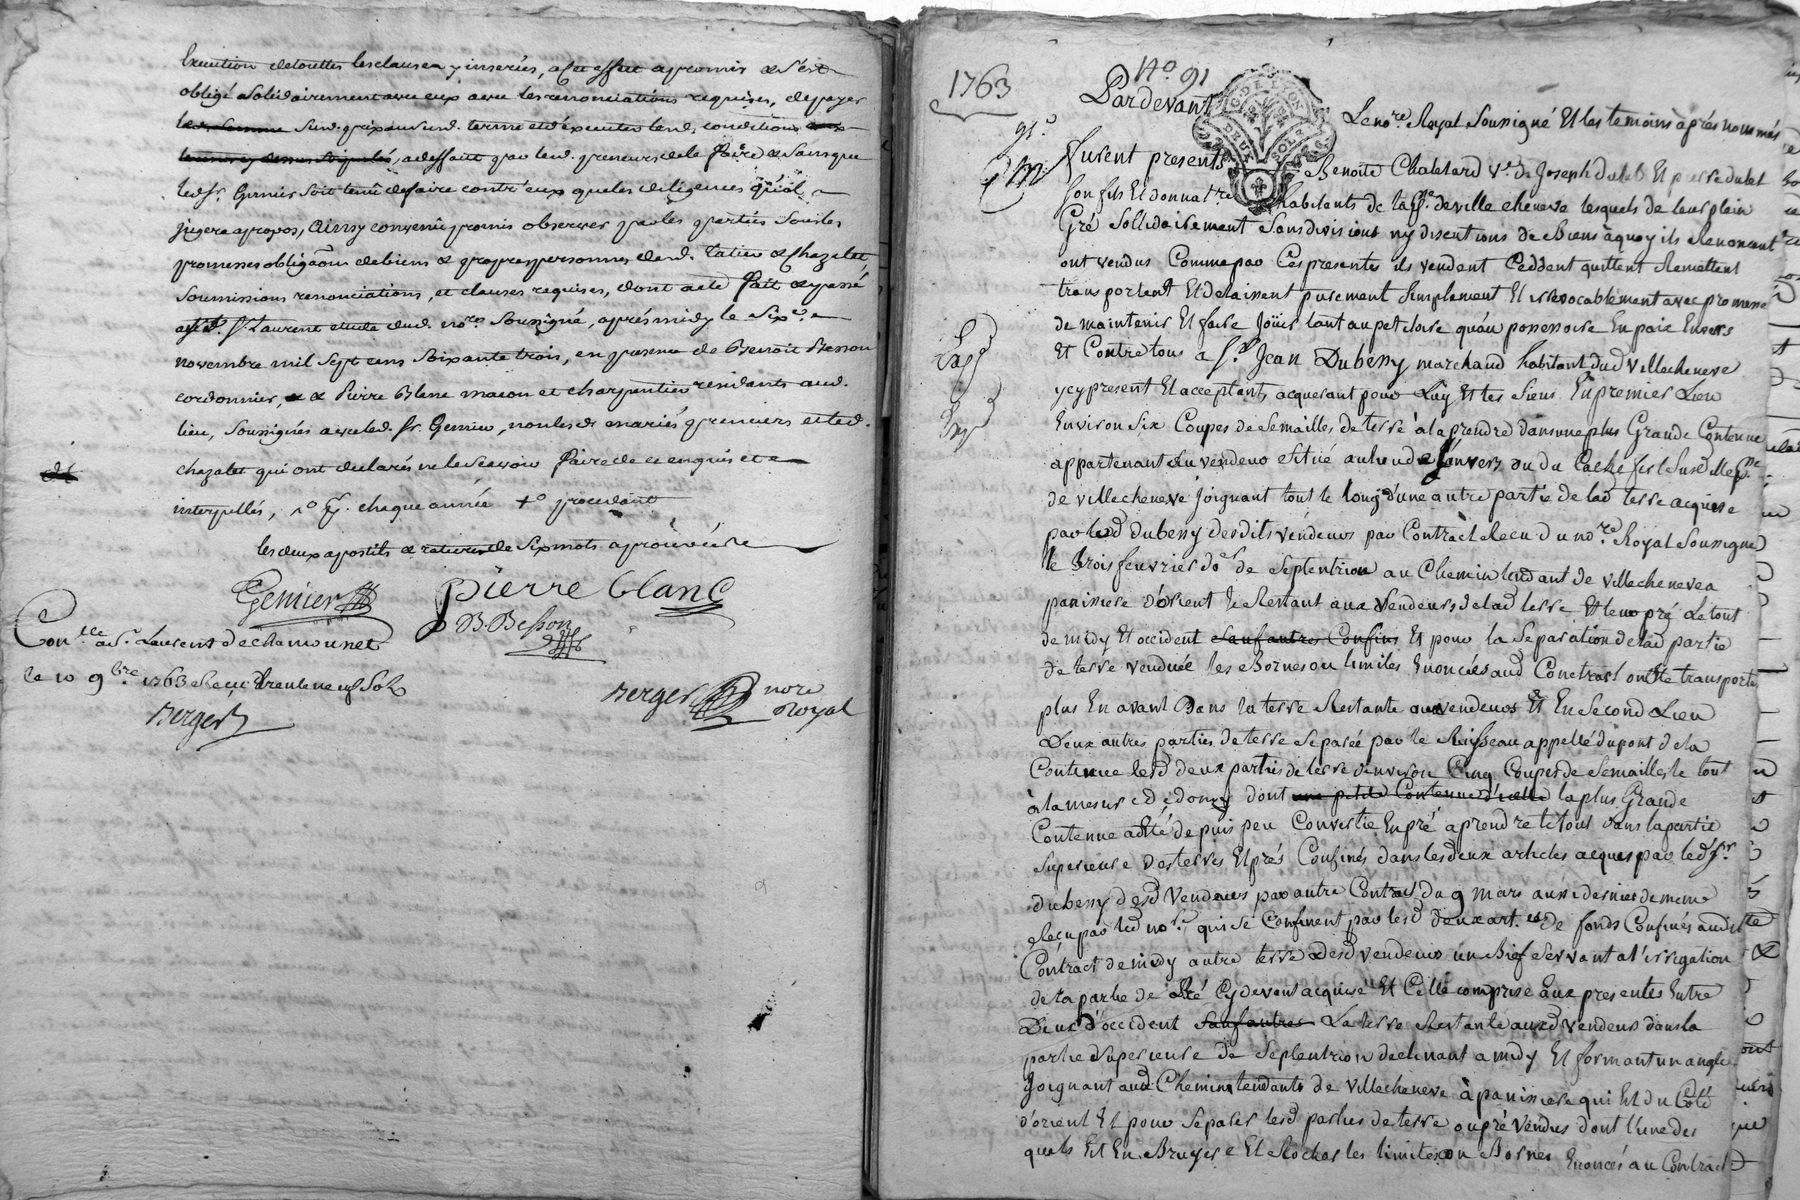 Execution de touttes les clauses y inserées, a cet effet a promis & s'est
obligé solidairement avec eux avec les renonciations requises, de payer
lesd. prix ausd. terme et d'executer lesd. conditions
a deffaut par lesd. preneurs de le faire & sans que
led. sr. Gemier soit tenû de faire contr'eux queles diligences qu'il
jugera apropos, Ainsy convenû promis observer par les parties sous les
promesses obligãon de biens & propres personnes desd. Tatieu & Chazalet
soumissions renonciations, et clauses requises, dont acte fait & passé
aud. St. Laurent etude dud. nore. soussigné, aprés midy le six e.
novembre mil sept cens soixante trois, en presence de Benoit Besson
cordonnier, & Pierre Blanc macon et charpentier residants aud.
lieu, soussignés avec led. sr. Gemier, non lesd. mariés preneurs et led.
chazalet qui ont declarés ne le scavoir faire de ce enquis et
interpellés, chaque année + o procedant
les deux apostils & rature de six mots aprouvée
Gemier pierre blanc
B. Besson
Conlle. a St. Laurent de chamousset
le 10 9bre 1763 Reçu trente neuf sols
Berger
Berger nore
Royal
1763
No. 91
Pardevant
G. DE LYON
DEUX SOLS
Le nore. Royal Soussigné Et les temoins àprés nommés
91e.
Furent presents Benoite Chatelard ve. de Joseph dulel Et pierre dulel
son fils Et donnatre habitants de la psse. de ville cheneve lesquels de leur plein
Gré Sollidairement Sans division ny discutions de Biens àquoy ils Renoncent
ont vendus Comme par Ces presentes ils vendent Ceddent quittent Remettent
transportent Et delaissent purement Simplement Et irrevocablement avec promesse
de maintenir Et faire Joüir tant au petitoire qu'au possessoire En paix Envers
Et Contre tous a sr. Jean Dubessy marchand habitant dud villecheneve
ycy present Et acceptant, acquerant pour Luy Et les Siens En premier Lieu
Environ Six Coupes de Semailles de terre à la prendre dans une plus Grande Contenue
appartenant du vendeur Situé au lieu de
de villecheneve Joignant tout le long d'une autre partie de lad terre acquise
par led dubessy desdits vendeurs par Contract Reçu du nore. Royal Soussigné
le trois feuvrier do. de Septentrion au Chemin tendant de villecheneve a
panissiere d'orient le Restant aux Vendeurs de lad terre Et leur pré Le tout
de midy Et occident sauf autres Confins Et pour la Separation de lad partie
de terre venduée les Bornes ou limites Enoncées aud Contract ont été transporté
plus En avant Dans la terre Restante aux vendeurs Et En Second Lieu
Deux autres parties de terre Separée par le Ruisseau appellé du pont de la
Contenue lesd deux parties de terre d'environ Cinq Coupes de Semailles le tout
à la mesure de donzy dont une petite Contenue d'icelle la plus Grande
Contenue a Eté depuis peu Convertie En pré a prendre le tout dans la partie
Superieure des terres Et prés Confinés dans les deux articles acquis par led sr.
dubessy desd Vendeurs par autre Contract du 9 mars aussi dernier de meme
Reçu par led nore. qui se Confinent par lesd deux art.es de fonds Confinés audit
Contract de midy autre terre desd vendeurs un Bief Servant a l'irrigation
de la partie de Pré Cy devant acquise Et Celle comprise aux presentes Entre
Deux d'occident sauf autres La terre Restante auxd vendeurs dans la
partie Superieure de Septentrion declinant a midy Et formant un angle
Joignant aud Chemin tendants de villecheneve à panissiere qui Est du Côté
d'orient Et pour Separer lesd parties de terre ou pré Vendus dont l'une des
quels Est En Bruyere Et Rochas les limites ou Bornes Enoncés au Contract